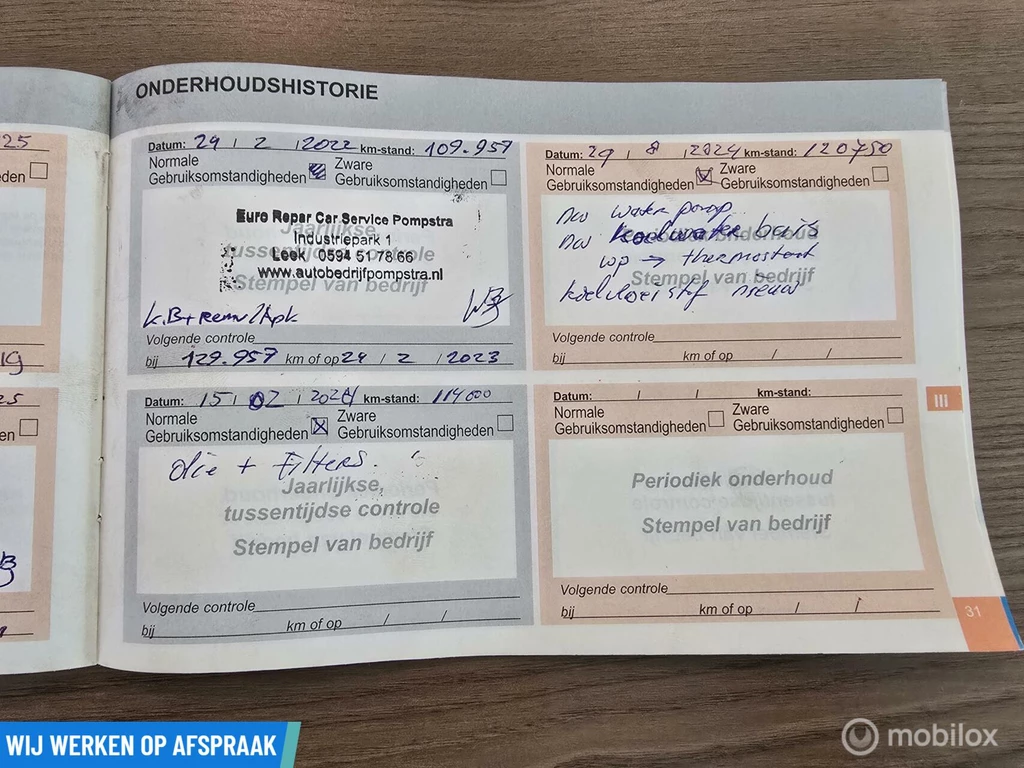 ONDERHOUDSHISTORIE
25
den
Datum: 29 / 2 / 2022 km-stand: 109.957
Normale
Gebruiksomstandigheden
Zware
Gebruiksomstandigheden
Euro Repar Car Service Pompstra
Industriepark 1
Leek 0594 51 78 66
www.autobedrijfpompstra.nl
Jaarlijkse,
tussentijdse controle
Stempel van bedrijf
Volgende controle
bij 129.957 km of op 24 / 2 / 2023
Datum: 29 / 8 / 2024 km-stand: 120750
Normale
Gebruiksomstandigheden
Zware
Gebruiksomstandigheden
nw waterpomp
nw koelwater buis
wp → thermostaat
koelvloeistof nieuw
Periodiek onderhoud
Stempel van bedrijf
Volgende controle
bij km of op / /
25
en
Datum: 15 / 02 / 2024 km-stand: 114000
Normale
Gebruiksomstandigheden
Zware
Gebruiksomstandigheden
olie + Filters.
Jaarlijkse,
tussentijdse controle
Stempel van bedrijf
Volgende controle
bij km of op / /
Datum: / / km-stand:
Normale
Gebruiksomstandigheden
Zware
Gebruiksomstandigheden
Periodiek onderhoud
Stempel van bedrijf
Volgende controle
bij km of op / /
III
31
WIJ WERKEN OP AFSPRAAK
mobilox